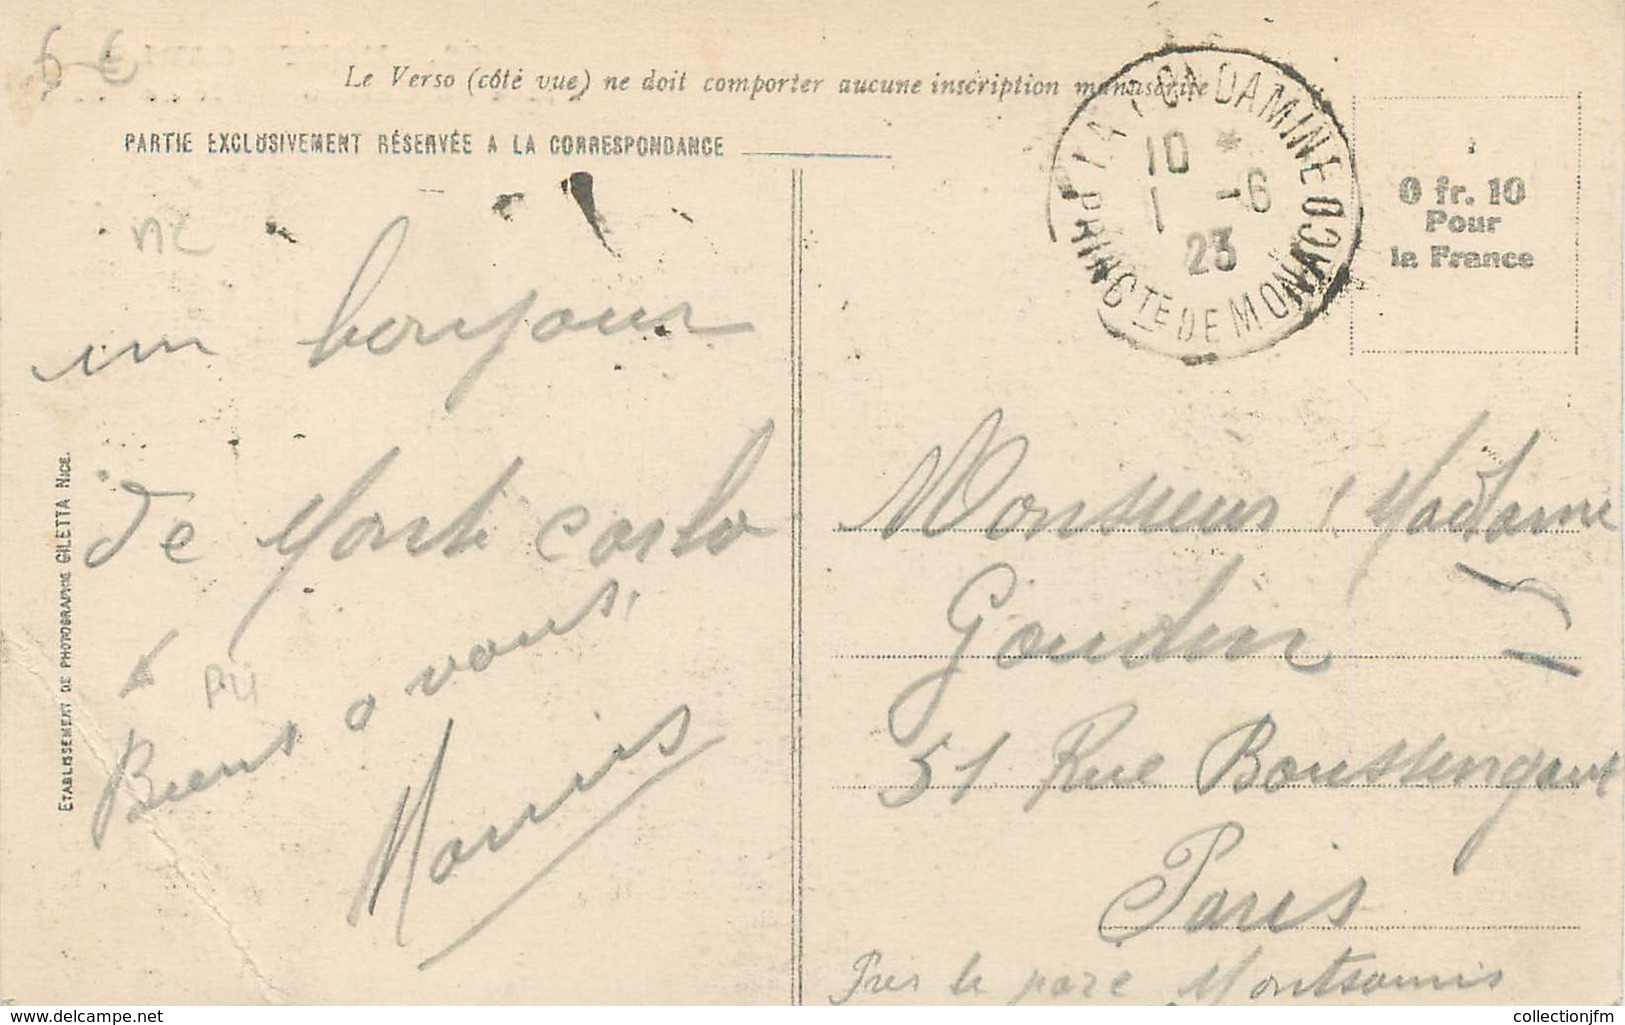 6 €
Le Verso (côté vue) ne doit comporter aucune inscription manuscrite
PARTIE EXCLUSIVEMENT RÉSERVÉE A LA CORRESPONDANCE
LA CONDAMINE
PRINCTÉ DE MONACO
10 *
1 -6
23
0 fr. 10
Pour
la France
un bonjour
de Monte carlo
Biens a vous,
Maurius
ETABLISSEMENT DE PHOTOGRAPHIE GILETTA NICE.
Monsieur / Madame
Goudin
51 Rue Boussengaut
Paris
Près le parc Montsouris
www.delcampe.net
collectionjfm